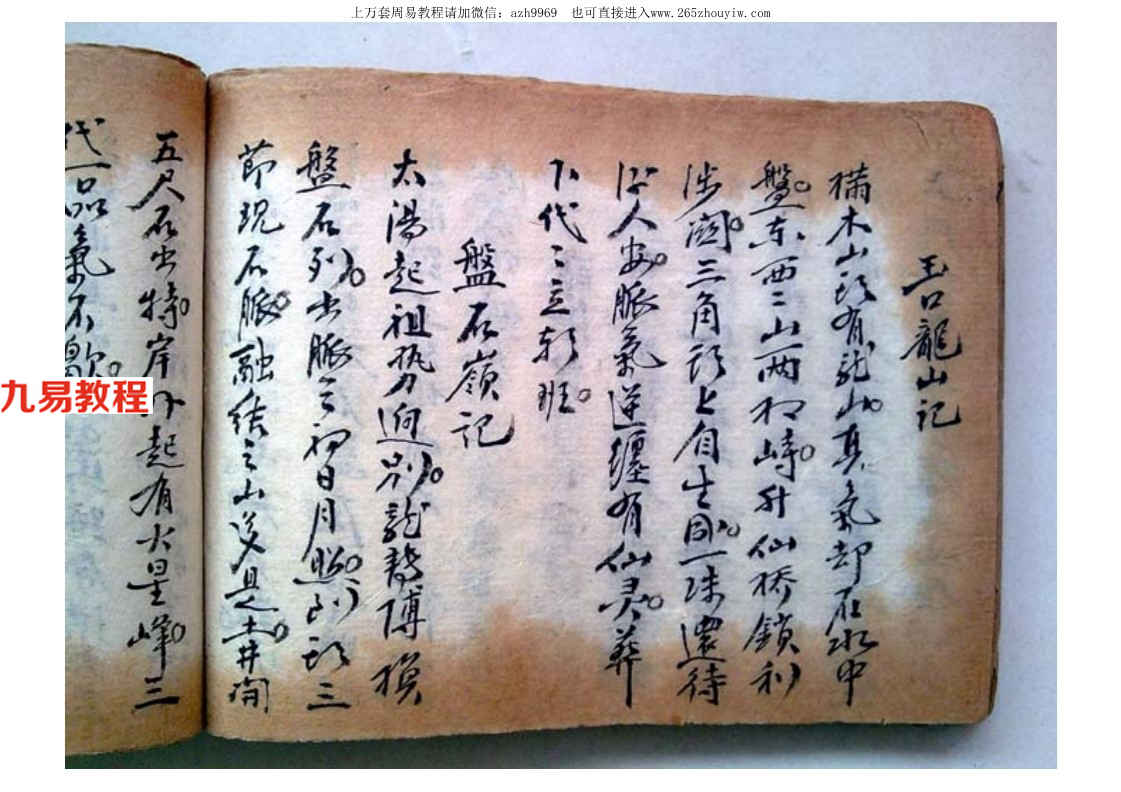 上万套周易教程请加微信：azh9969　也可直接进入www.265zhouyiw.com
玉口龍山记
木山頭有龍山。真氣却在水中
盤。东西二山两相峙。升仙桥鎖利
涉関。三角頭上自生。一珠還待
人安。脈氣逆纏有仙灵。葬
下代二立朝班。
盤石嶺记
太陽起祖势迎别。龍換
盤石列。出脈之初日月照。到頭三
節現石脈。融结之山是土。井間
五尺石出特。岸外起有火星峰。三
代一品氣不歇。
九易教程